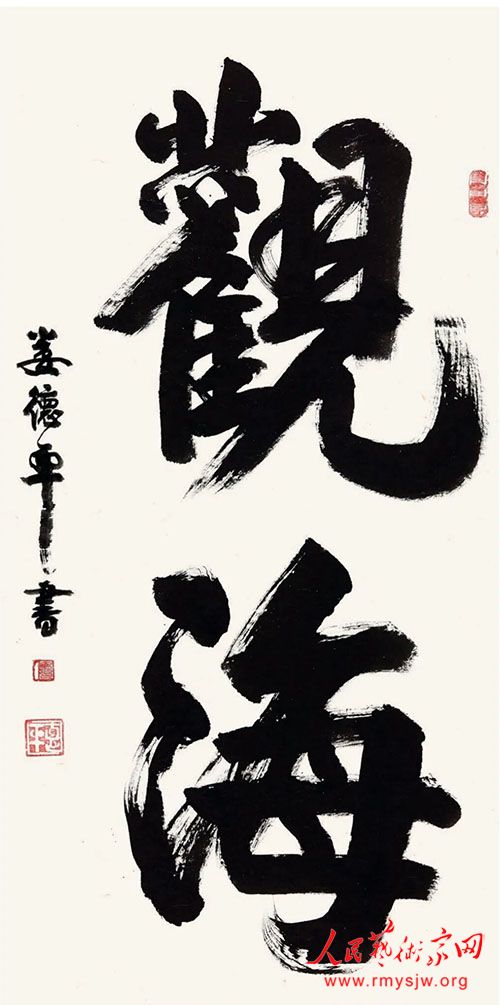 觀海
姜德書
人民藝術家网
www.rmysjw.org